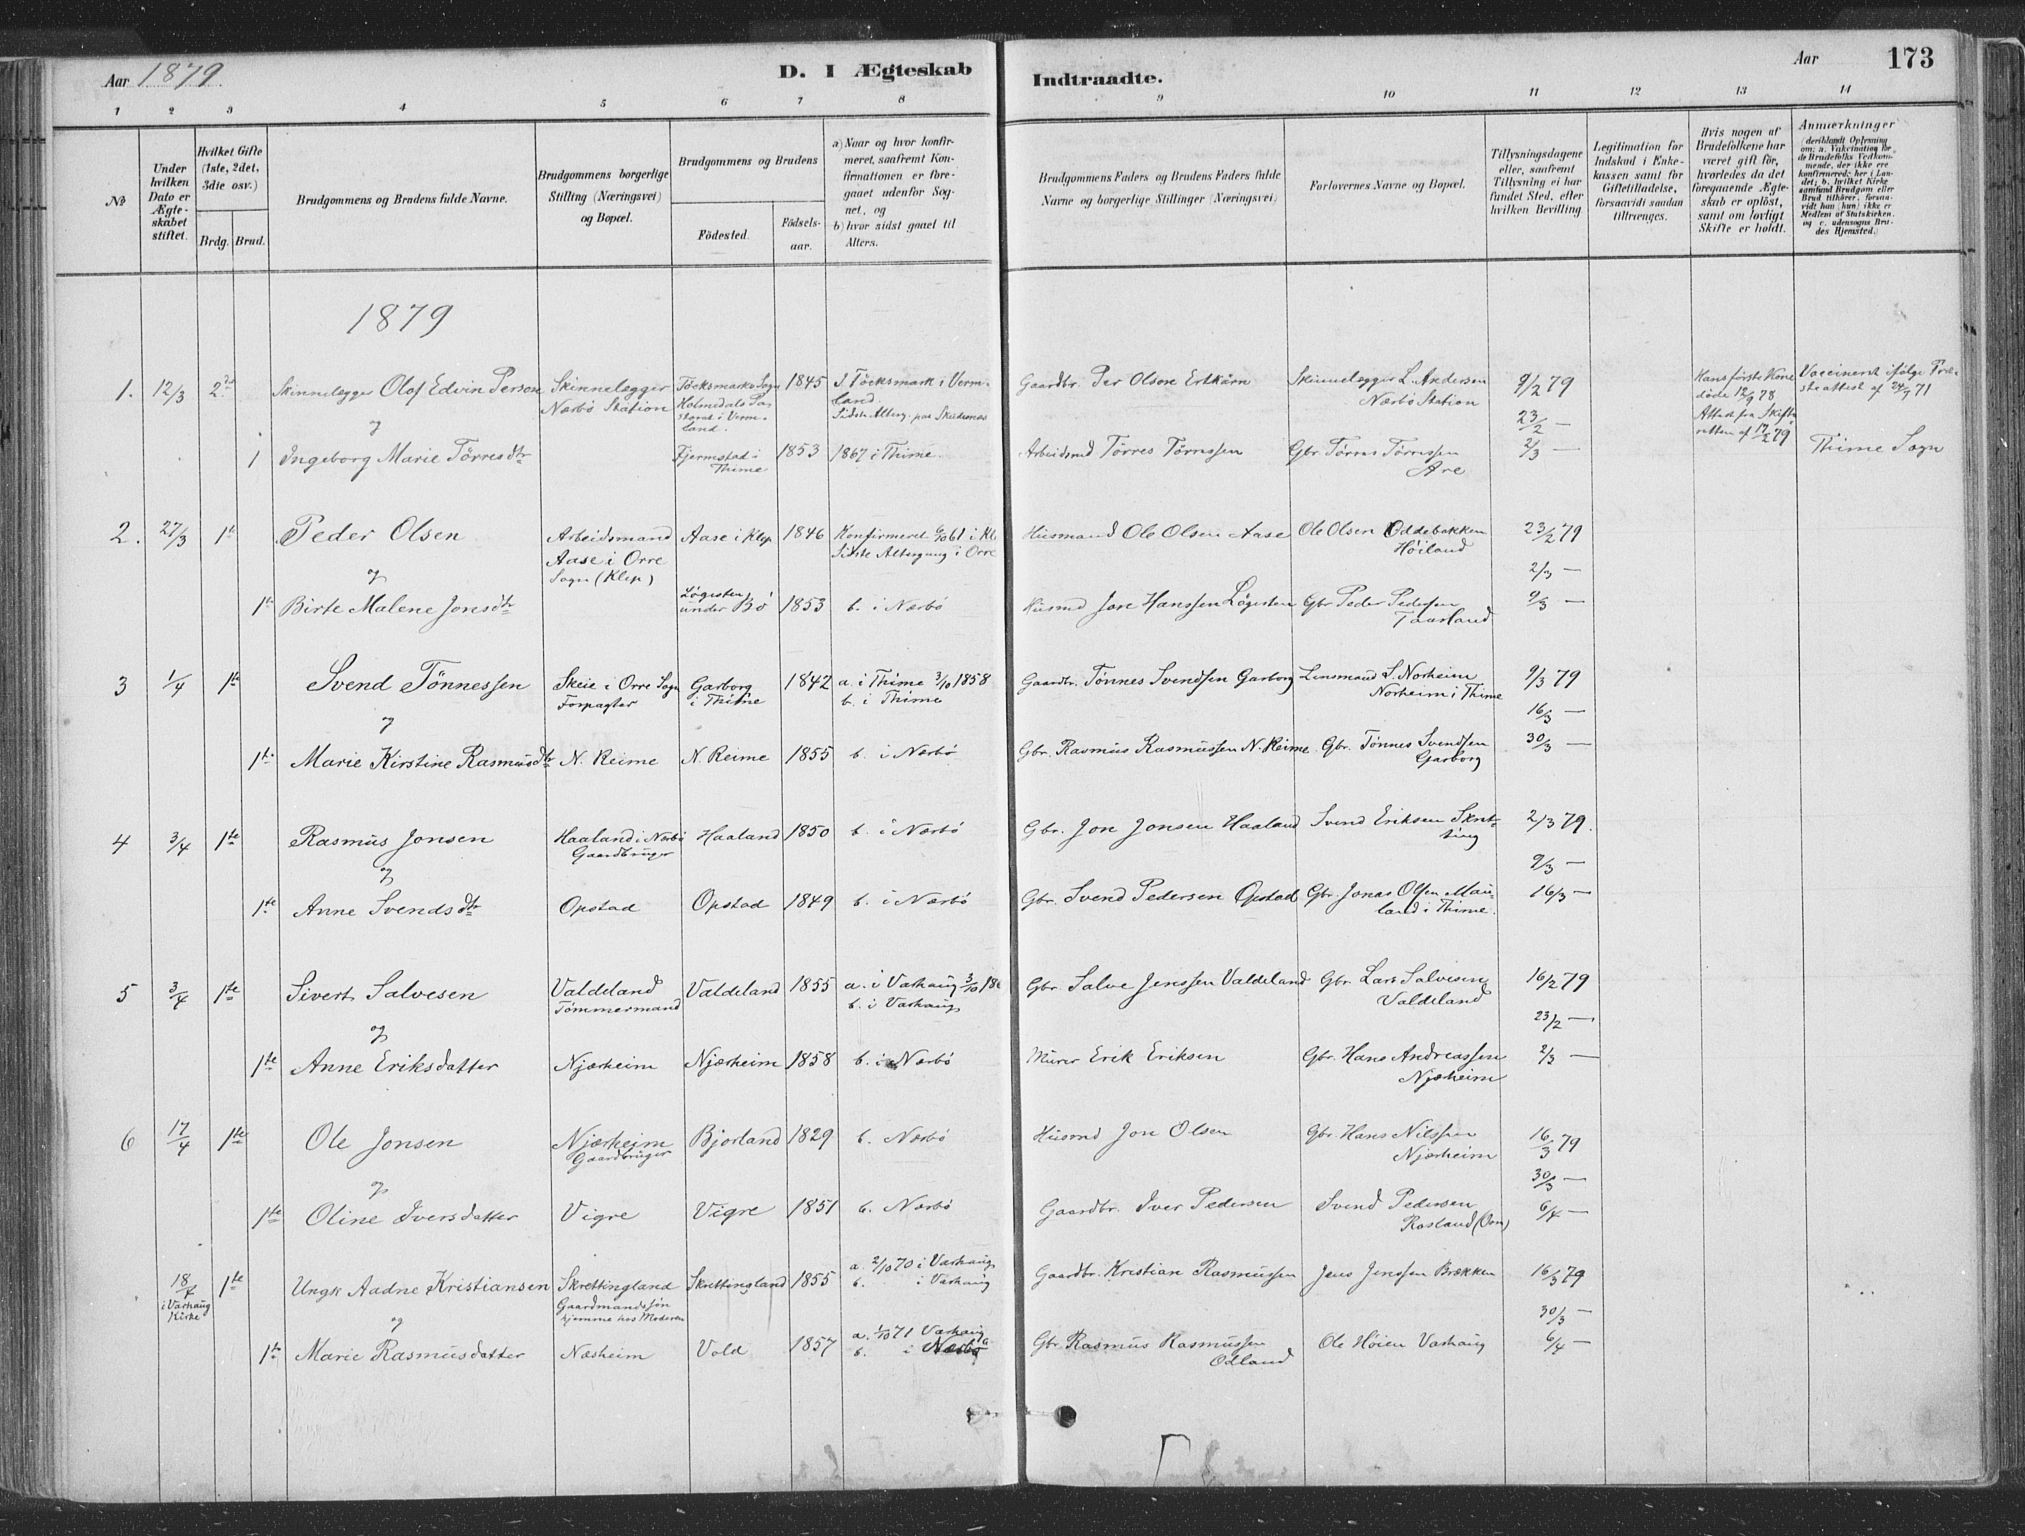 Aar 1879. D. I Ægteskab Indtraadte. Aar 173
1 2 3 4 5 6 7 8 9 10 11 12 13 14
No
Under hvilken Dato er Ægteskabet stiftet.
Hvilket Gifte (1ste, 2det, 3die osv.)
Brdg. Brud.
Brudgommens og Brudens fulde Navne.
Brudgommens borgerlige Stilling (Næringsvei) og Bopæl.
Brudgommens og Brudens
Fødested. Fødsels-aar.
a) Naar og hvor konfirmeret, saafremt Konfirmationen er foregaaet udenfor Sognet, og b) hvor sidst gaaet til Alters.
Brudgommens Faders og Brudens Faders fulde Navne og borgerlige Stillinger (Næringsvei)
Forlovernes Navne og Bopæl.
Tillysningsdagene eller, saafremt Tillysning ei har fundet Sted, efter hvilken Bevilling
Legitimation for Indskud i Enkekassen samt for Giftetilladelse, forsaavidt saadan tiltrænges.
Hvis nogen af Brudefolkene har været gift før, hvorledes da det foregaaende Ægteskab er opløst, samt om lovligt Skifte er holdt.
Anmærkninger
1879
1. 12/3 2de Skinnelægger Olof Edvin Person Skinnelægger Nærbö Station Töcksmarks Sogn Holmedals Pastorat i Vermland. 1845 I Töcksmark i Vermland. Sidste Alterg. paa Skudesnæs Gaardbr. Per Olson Ertkärn Skinnelægger L. Andersen Nærbö Station 9/2 79 Hans förste Kone döde 12/9 78 Attest fra Skifteretten af 17/2 79 Vaccineret ifölge Præsteattest af 24/9 71
og 23/2 —
1 Ingeborg Marie Törresdtr Fjermstad i Thime 1853 1867 i Thime. Arbeidsmd Törres Törressen Gbr. Törres Törressen Are 2/3 — Thime Sogn
2. 27/3 1te Peder Olsen Arbeidsmand Aase i Orre Sogn (Klep) Aase i Klep 1846 Konfirmeret 6/10 61 i Kl Sidste Altergang i Orre Husmand Ole Olsen Aase Ole Olsen Oddebakken Höiland 23/2 79
og 2/3 —
1te Birte Malene Jonsdtr Lögesten under Bö 1853 b. i Nærbö Husmd Jon Hanssen Lögesten Gbr Peder Pedersen Taarland 9/3 —
3 1/4 1te Svend Tönnessen Skeie i Orre Sogn Forpagter Garborg i Thime 1842 a. i Thime 3/10 1858 b. i Thime Gaardbr. Tönnes Svendsen Garborg Lensmand S. Norheim Norheim i Thime 9/3 79
og 16/3 —
1te Marie Kirstine Rasmusdtr N. Reime N. Reime 1855 b. i Nærbö Gbr. Rasmus Rasmussen N. Reime Gbr. Tönnes Svendsen Garborg 30/3 —
4 3/4 1te Rasmus Jonsen Haaland i Nærbö Gaardbruger Haaland 1850 b. i Nærbö Gbr. Jon Jonsen Haaland Svend Eriksen 2/3 79.
og 9/3 —
1te Anne Svendsdtr Opstad Opstad 1849 b. i Nærbö Gbr. Svend Pedersen Opstad Gbr. Jonas Olsen Mauland i Thime. 16/3 —
5 3/4 1te Sivert Salvesen Valdeland Tömmermand Valdeland 1855 a. i Varhaug 3/10 b. i Varhaug Gbr. Salve Jenssen Valdeland Gbr. Lars Salvesen Valdeland 16/2 79
og 23/2 —
1te Anne Eriksdatter Njærheim Njærheim 1858 b. i Nærbö Murer Erik Eriksen Gbr. Hans Andreassen Njærheim 2/3 —
6 17/4 1te Ole Jonsen Njærheim Gaardbruger Bjorland 1829 b. Nærbö Husmd Jon Olsen Gbr. Hans Nilssen Njærheim 16/3 79
og 30/3 —
1te Oline Iversdatter Vigre Vigre 1851 b. Nærbö Gaardbr. Iver Pedersen Svend Pedersen 6/4 —
18/4 i Varhaug Kirke 1te Ungk Aadne Kristiansen Skrettingland Gaardmandssön hjemme hos Moderen Skrettingland 1855 a. 2/10 70 i Varhaug b. i Varhaug Gaardbr. Kristian Rasmussen Jens Jenssen Brække​n 16/3 79
og 30/3 —
1te Marie Rasmusdatter Næsheim Vold 1857 a. 1/10 71 Varhaug b. i Nærbö Gbr. Rasmus Rasmussen Odland Ole Höien Varhaug 6/4 —